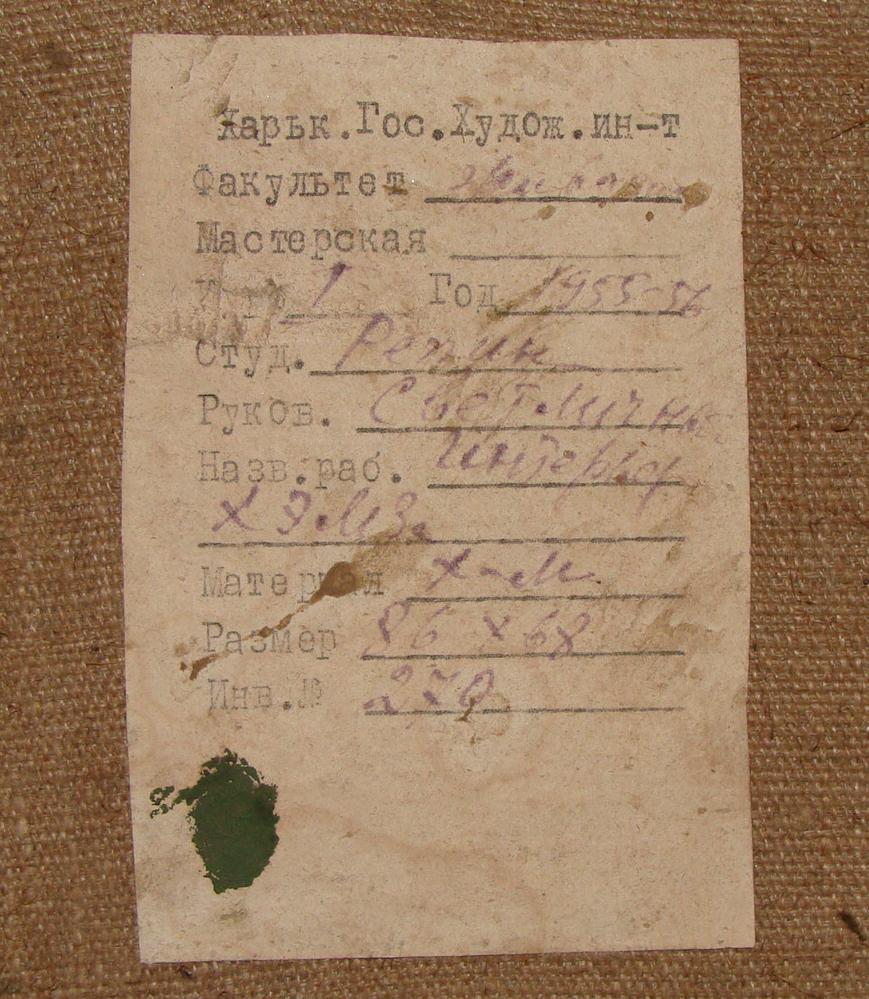 Харьк.Гос.Худож.ин-т
Факультет живопис
Мастерская
1 Год 1955-56
Студ. Репин
Руков. Светличный
Назв.раб. Интерьер
ХЭМЗ.
Материал х-м
Размер 86 х 68
Инв.№ 270